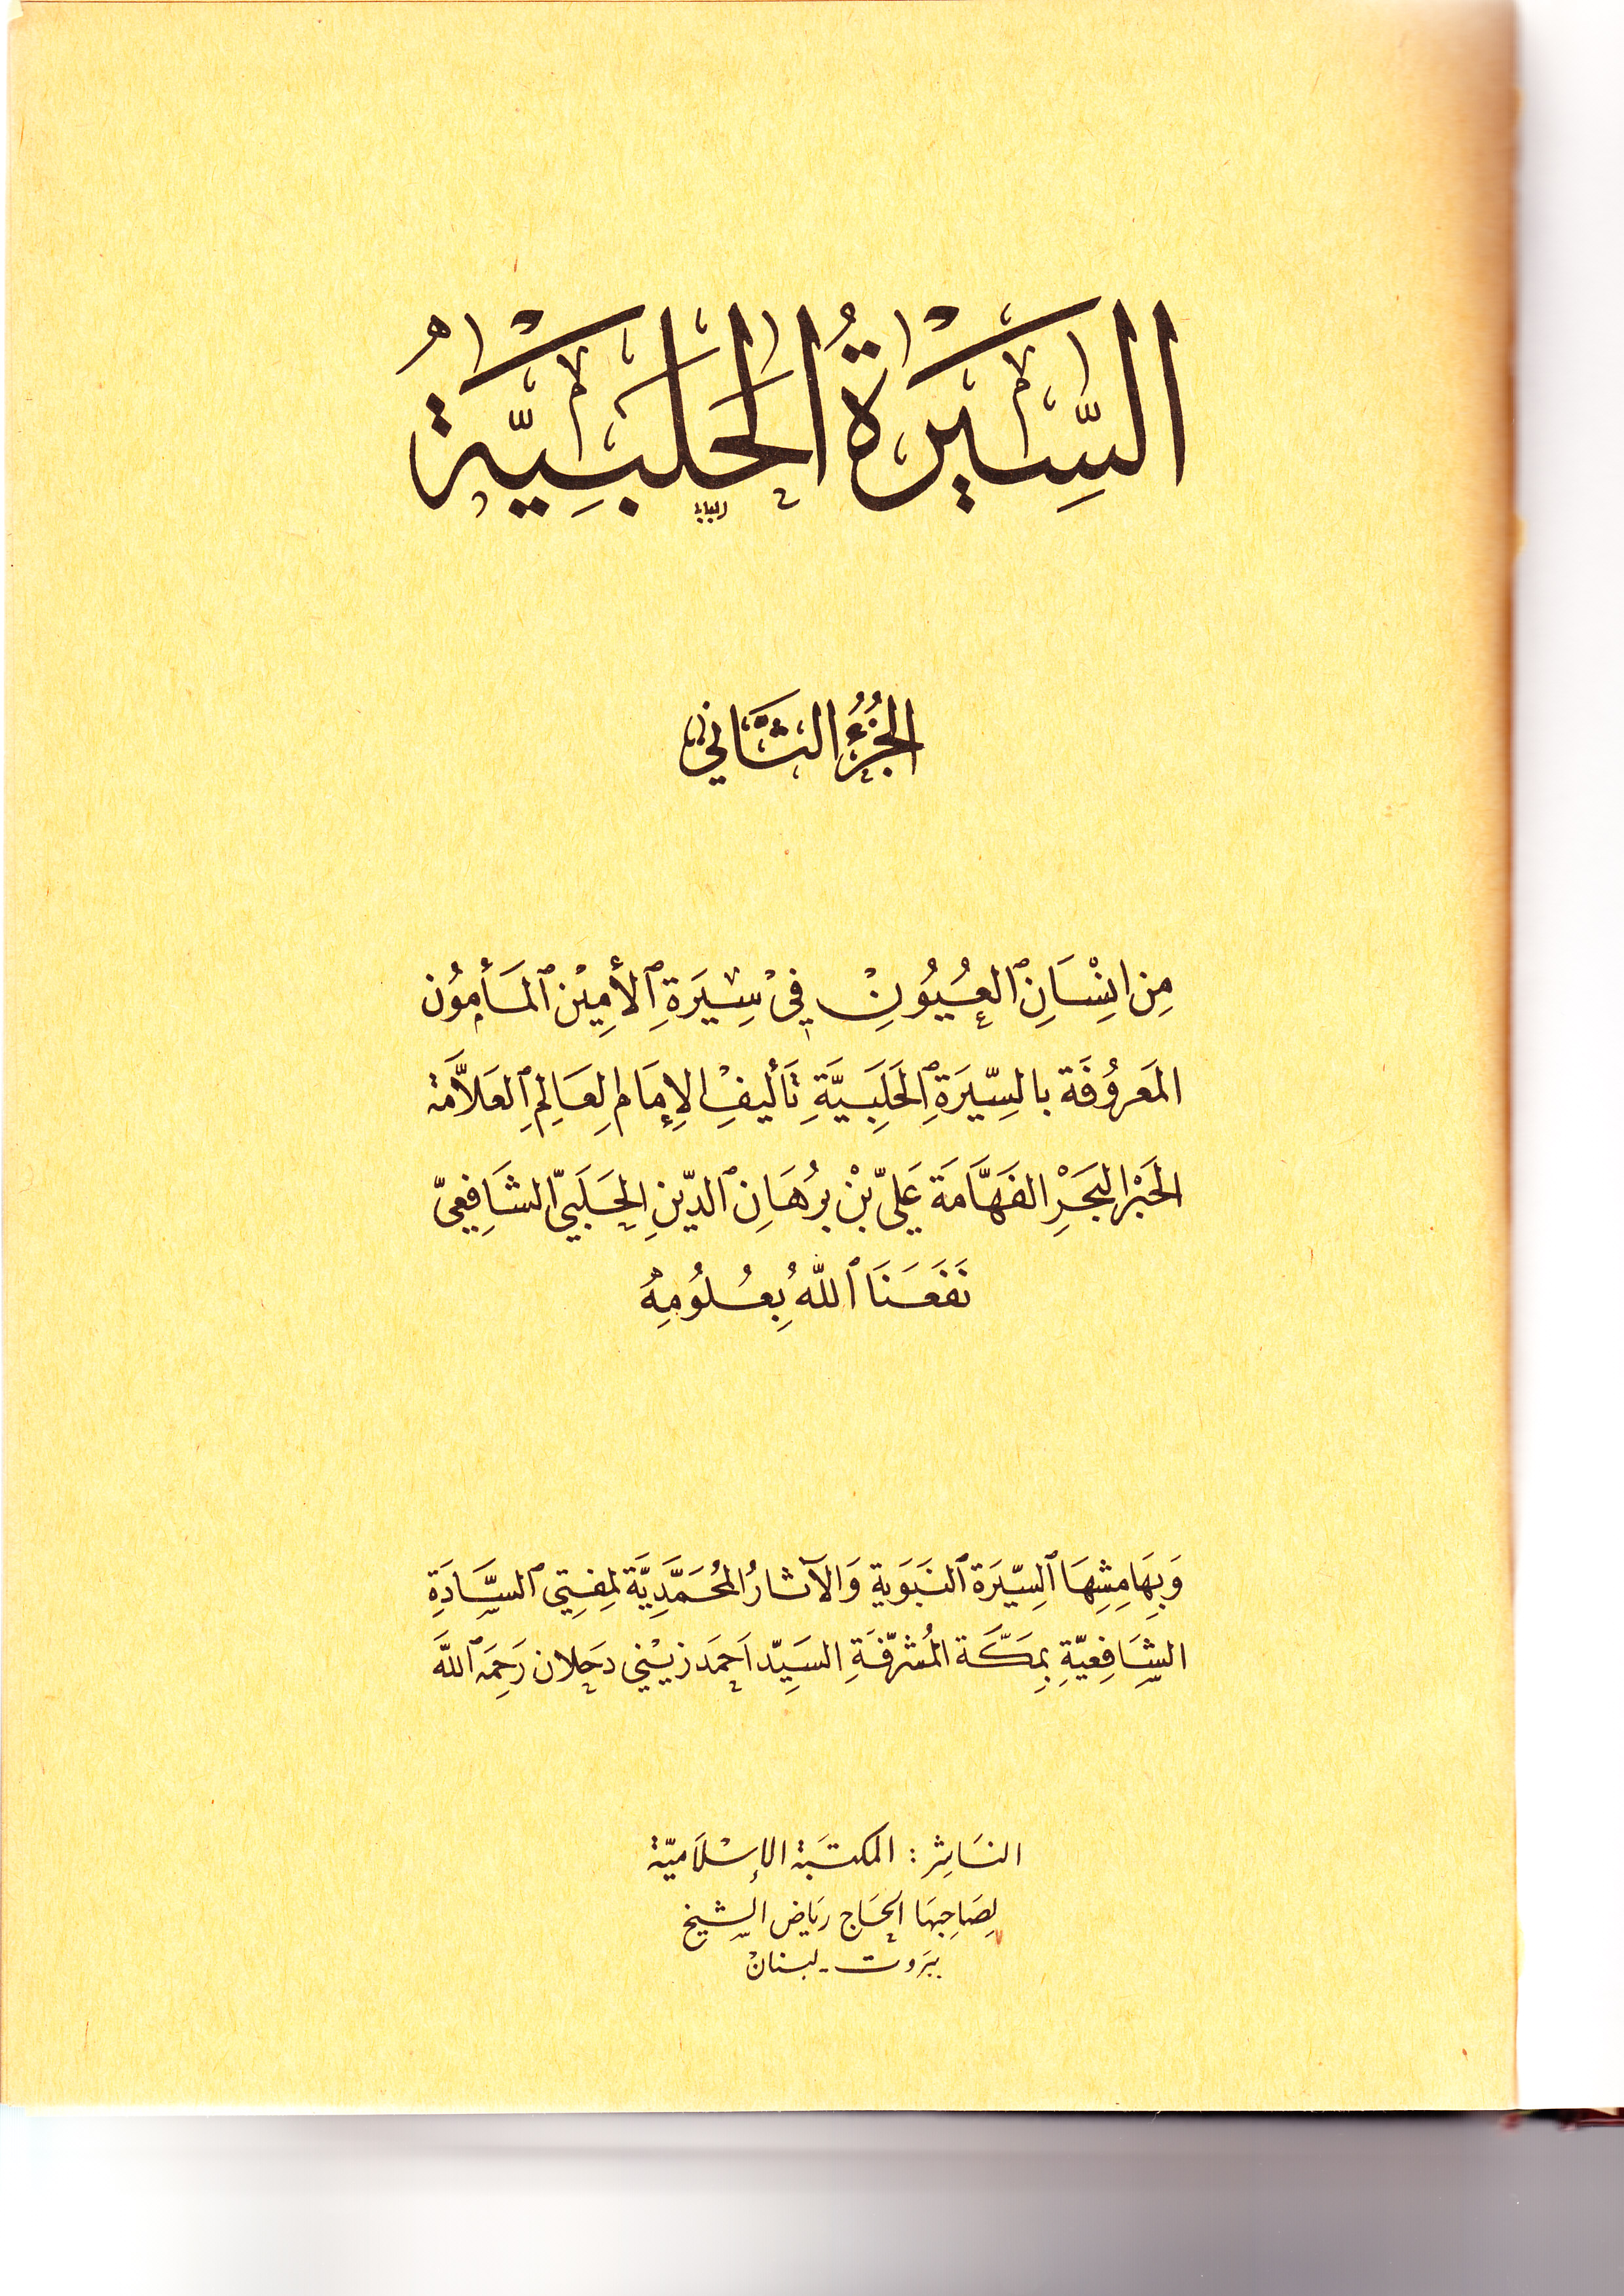 السِّيْرَةُ الحَلَبِيَّة
البابا
الجُزْءُ الثَّاني
مِن انِسْانِ ٱلعُيُونِ فِيْ سِيْرَةِ ٱلأمِيْن ٱلمَأمُون
المَعرُوفَة بالسِّيرَةِ ٱلحَلَبِيَّةِ تَأليفِ الإمَام العَالِمِ ٱلعَلاَّمَة
الحَبْر البَحْرِ الفَهَّامَة عَليّ بْن بُرهَانِ ٱلدّينِ الحَلَبيّ الشَافِعيّ
نَفَعَنَا ٱللّهُ بِعُلُومِهُ
وَبِهَامِشِهَا ٱلسِّيرَة ٱلنَبَوَية وَالآثارُ المُحَمَّدِيَّة لمِفتِي ٱلسَّادَةِ
الشَافِعيّةِ بِمَكَّة المُشرّفَةِ السَيِّد اَحمَد زيْني دحلان رَحِمَه ٱللّهَ
النَاشِر : المكتَبَة الإسْلاَميّة
لِصَاحِبهَا الحَاج ريَاض الشيخ
بيَروت - لبنانْ